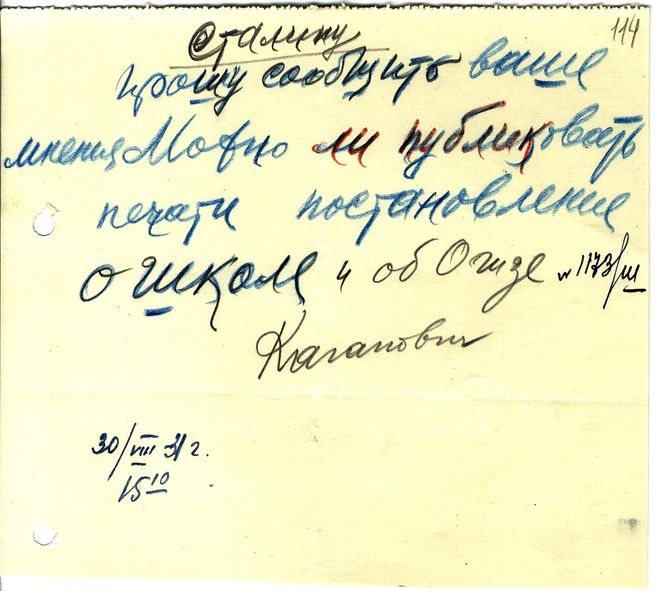 114
Сталину
прошу сообщить ваше
мнения Можно ли публиковать
печати постановление
о школе и об Огизе № 1173/ш
Каганович
30/VIII 31 г.
15 10